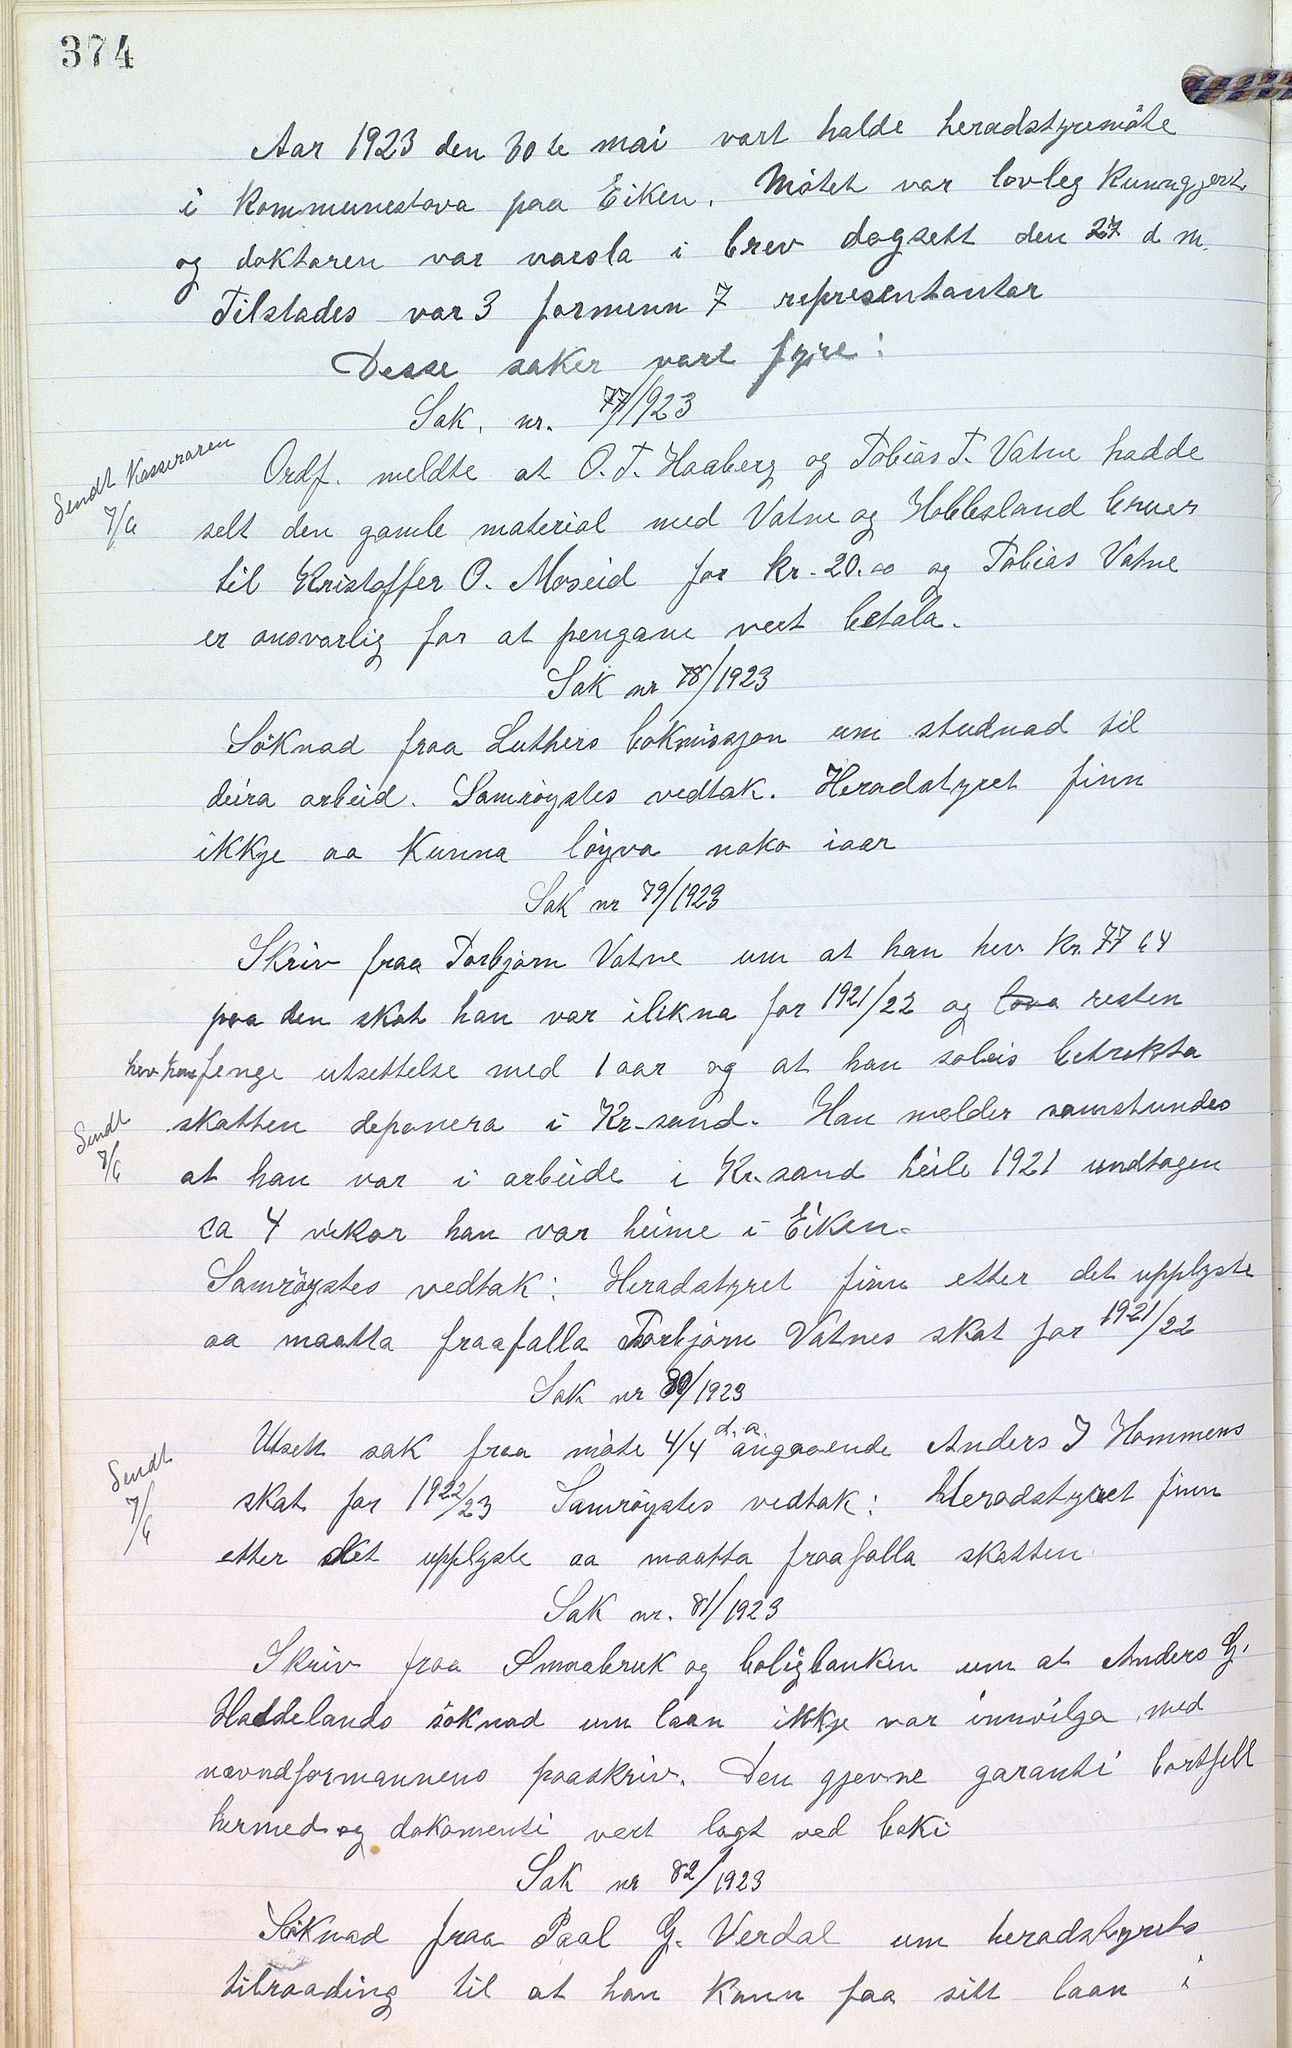 374
Aar 1923 den 30te mai vart halde heradstyremöte
i Kommunestova paa Eiken. Mötet var lovleg Kunngjort
og doktaren var varsla i brev dagsett den 27 d m.
Tilstades var 3 formenn 7 representantar
Desse saker vart fyre:
Sak. nr. 77/1923
Sendt Kasseraren
7/6
Ordf. meldte at O. T. Haaberg og Tobias T. Vatne hadde
selt den gamle material med Vatne og Hobbesland bruer
til Kristoffer O. Moseid for kr. 20.00 og Tobias Vatne
er ansvarlig for at pengane vert betala.
Sak nr 78/1923
Söknad fraa Luthers bokmissjon um studnad til
deira arbeid. Samröystes vedtak. Heradstyret finn
ikkje aa Kunna löyva noko iaar
Sak nr 79/1923
Skriv fraa Torbjörn Vatne um at han hev kr. 77 64
paa den skat han var ilikna for 1921/22 og lova resten
hev han fenge utsettelse med 1 aar og at han soleis betrakta
Sendt
7/6
skatten deponera i Kr.sand. Han melder samstundes
at han var i arbeide i Kr.sand heile 1921 undtagen
ca 4 vikor han var heime i Eiken.
Samröystes vedtak: Heradstyret finn etter det upplyste
aa maatta fraafalla Torbjörn Vatnes skat for 1921/22
Sak nr 80/1923
Sendt
7/6
Utsett sak fraa möte 4/4 d.a. angaaende Anders J Hommens
skat for 1922/23 Samröystes vedtak: Heradstyret finn
etter det upplyste aa maatta fraafalla skatten
Sak nr. 81/1923
Skriv fraa Smaabruk og boligbanken um at Anders G.
Haddelands söknad um laan ikkje var innvilga, med
nævndformannens paaskriv. Den gjevne garanti bortfell
hermed og dokomenti vert lagt ved boki
Sak nr 82/1923
Söknad fraa Paal G. Verdal um heradstyrets
tilraading til at han kann faa sitt laan i